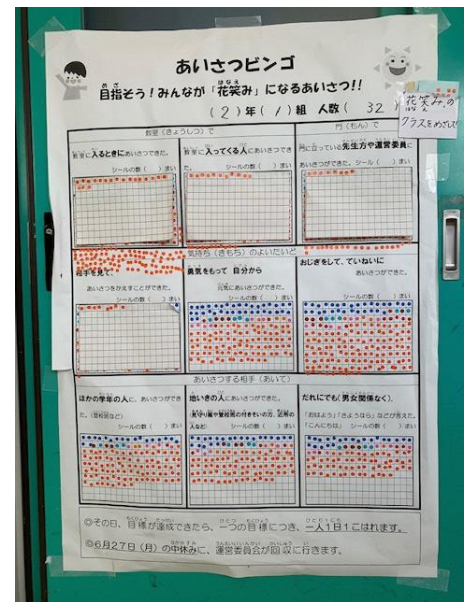 あいさつビンゴ
目指そう！みんなが「花笑み」になるあいさつ!!
(2)年(1)組 人数( 32 )
花笑み。の
はなえ
クラスをめざして
教室(きょうしつ)で
門(もん)で
教室に入るときにあいさつできた。
シールの数( )まい
教室に入ってくる人にあいさつでき
た。 シールの数( )まい
門に立っている先生方や運営委員に
あいさつができた。シール( )まい
気持ち(きもち)のよいたいど
相手を見て、
あいさつをかえすことができた。
シールの数( )まい
勇気をもって 自分から
元気にあいさつができた。
シールの数( )まい
おじぎをして、ていねいに
あいさつができた。
シールの数( )まい
あいさつする相手(あいて)
ほかの学年の人に、あいさつができ
た。(登校班など)
シールの数( )まい
地いきの人にあいさつできた。
(見守り隊や登校班の付きそいの方、近所の
人など) シールの数( )まい
だれにでも(男女関係なく)、
「おはよう」「さようなら」などが言えた。
「こんにちは」 シールの数( )まい
◎その日、目標が達成できたら、一つの目標につき、一人1日1こはれます。
◎6月27日(月)の中休みに、運営委員会が回収に行きます。